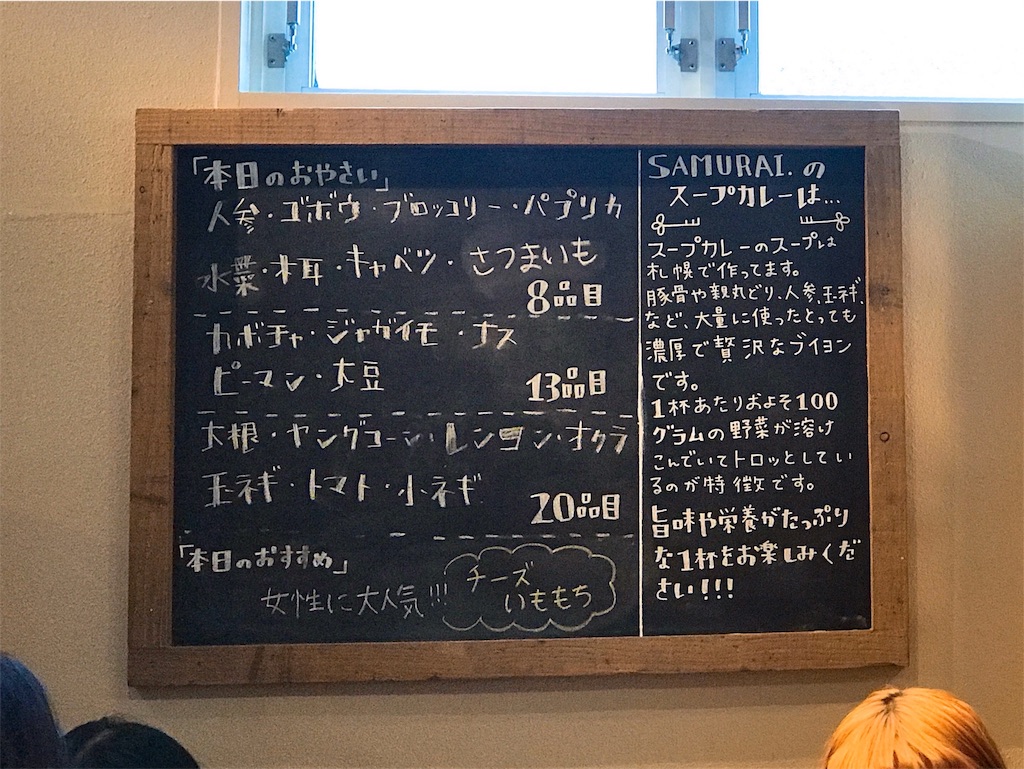 「本日のおやさい」
人参・ゴボウ・ブロッコリー・パプリカ
水菜・木耳・キャベツ・さつまいも
8品目
カボチャ・ジャガイモ・ナス
ピーマン・大豆
13品目
大根・ヤングコーン・レンコン・オクラ
玉ネギ・トマト・小ネギ
20品目
「本日のおすすめ」
女性に大人気!!!
チーズ
いももち
SAMURAI.の
スープカレーは...
スープカレーのスープは
札幌で作ってます。
豚骨や親丸どり、人参、玉ネギ、
など、大量に使ったとっても
濃厚で贅沢なブイヨン
です。
1杯あたりおよそ100
グラムの野菜が溶け
こんでいてトロッとしてい
るのが特徴です。
旨味や栄養がたっぷり
な1杯をお楽しみくだ
さい!!!